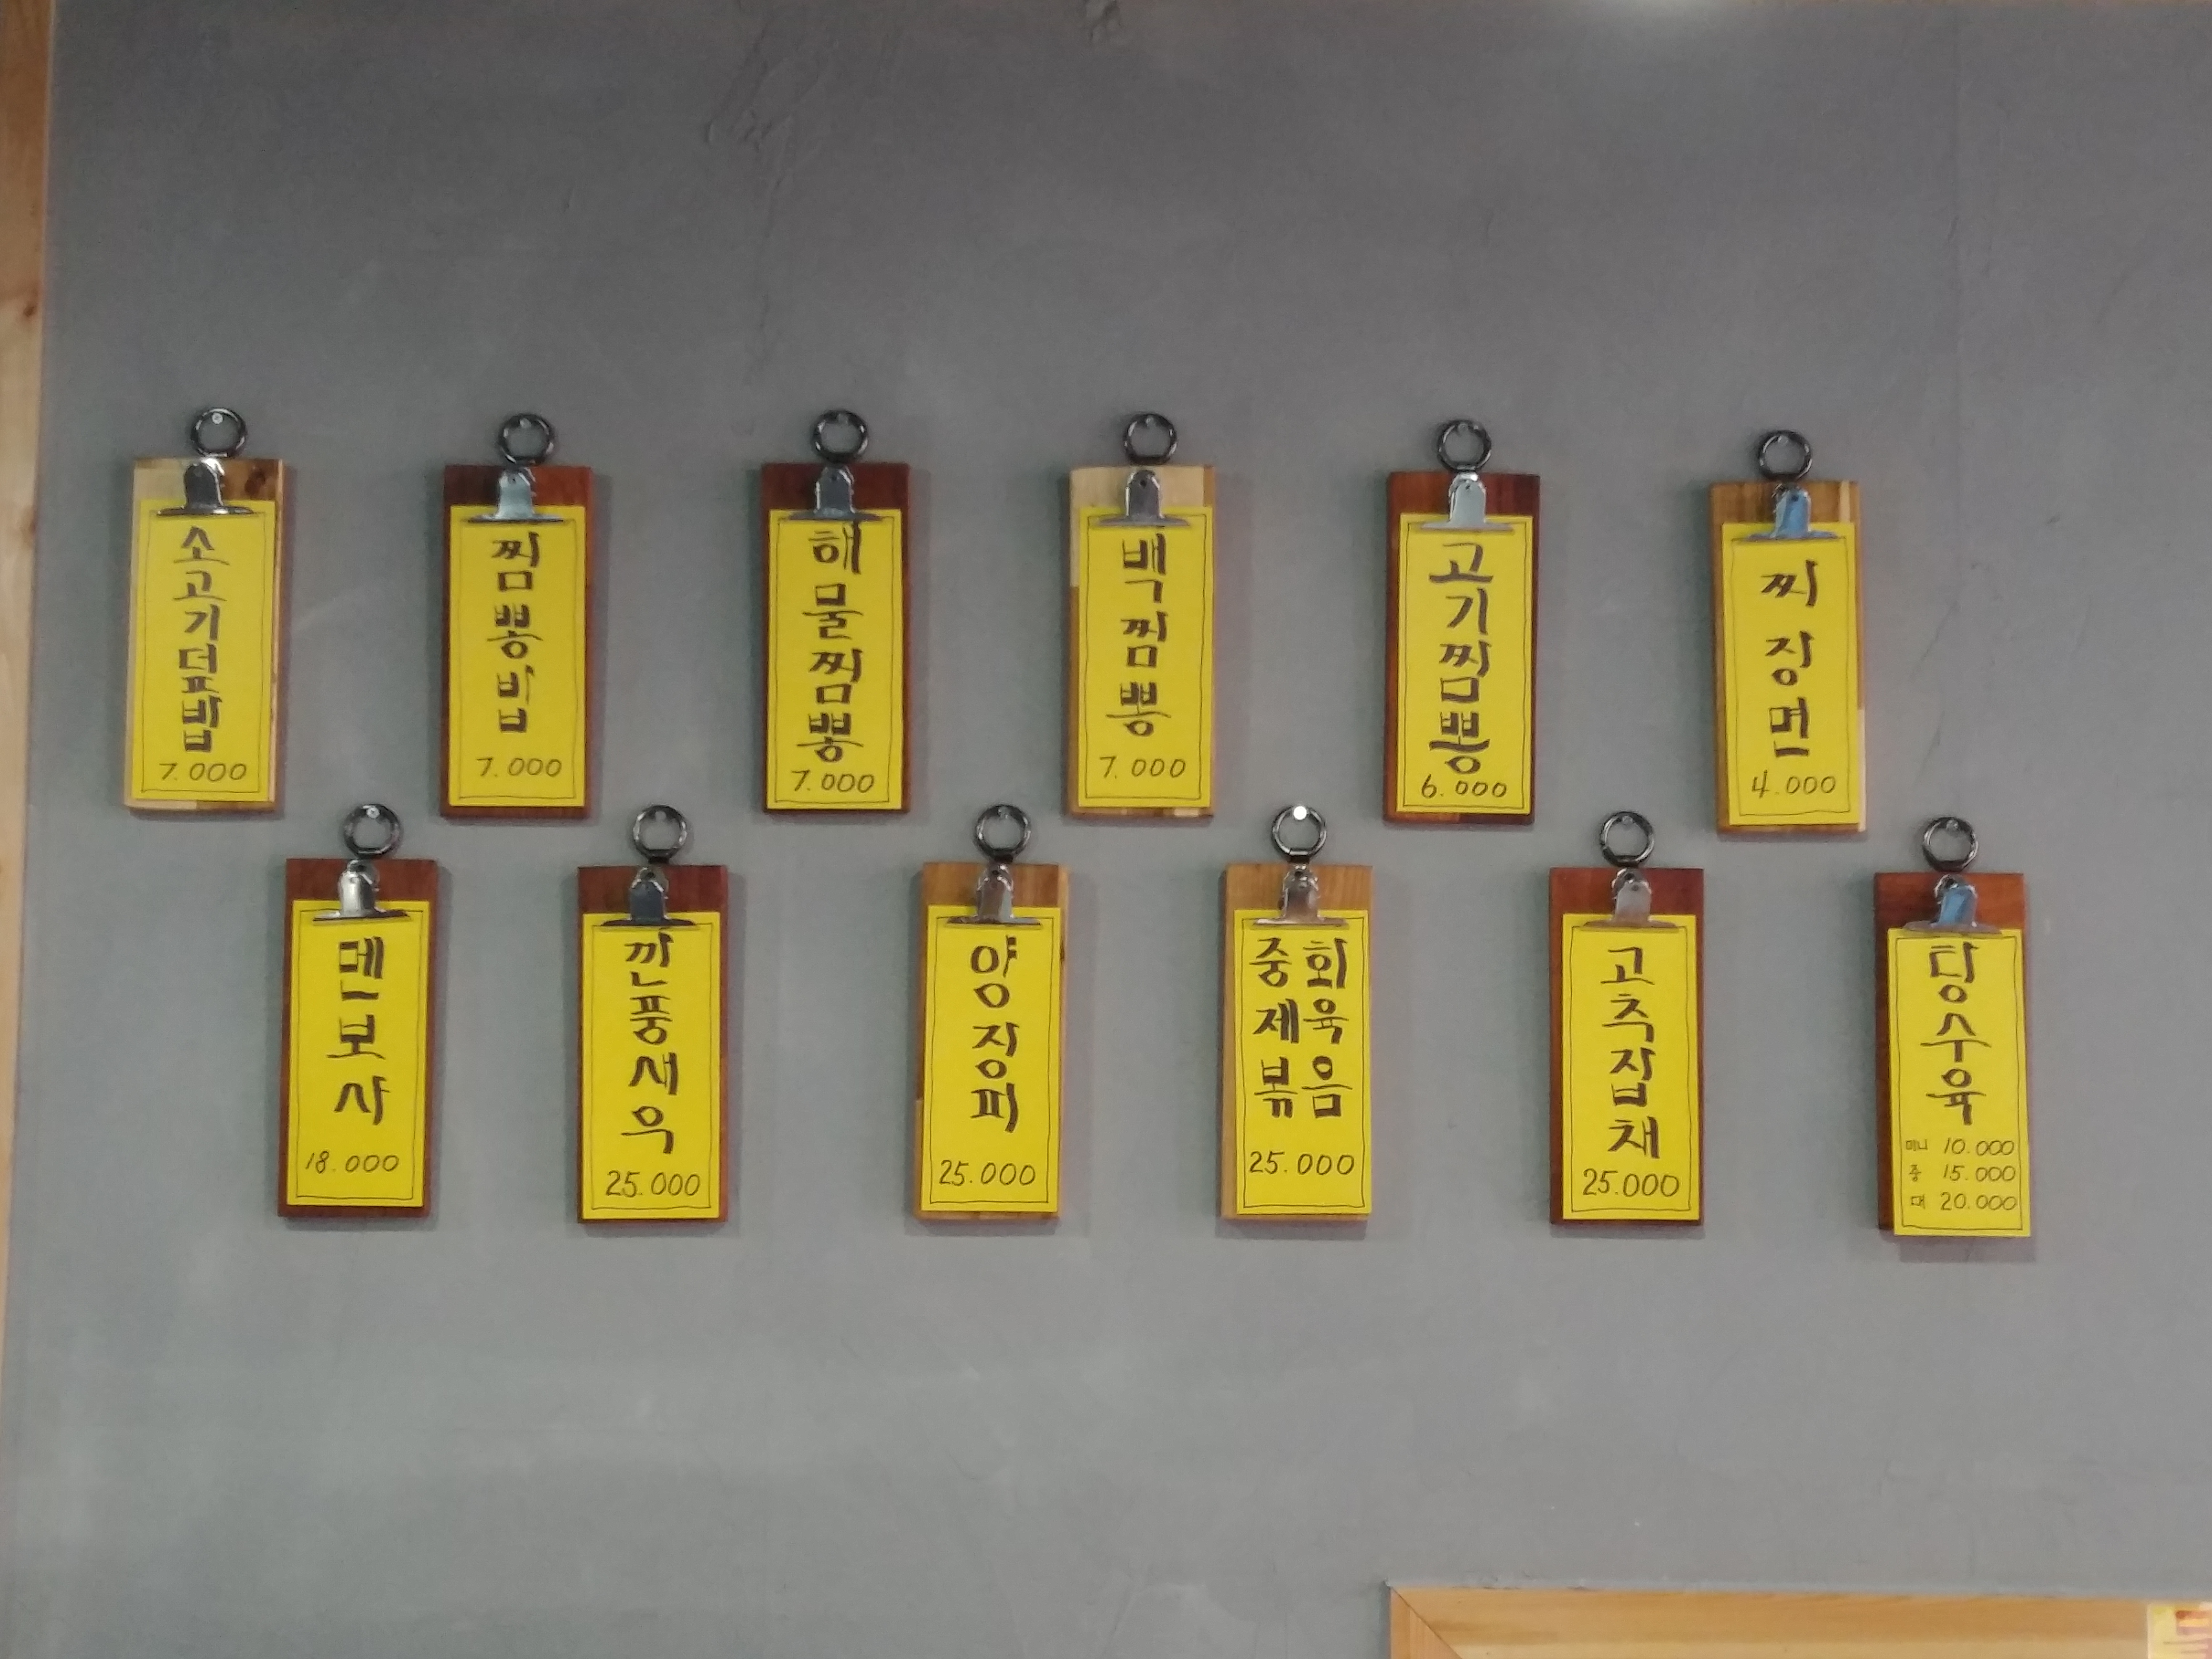 소고기덮밥
7.000
짬뽕밥
7.000
해물짬뽕
7.000
백짬뽕
7.000
고기짬뽕
6.000
짜장면
4.000
멘보샤
18.000
깐풍새우
25.000
양장피
25.000
중화
제육
볶음
25.000
고추잡채
25.000
탕수육
미니 10.000
중 15.000
대 20.000